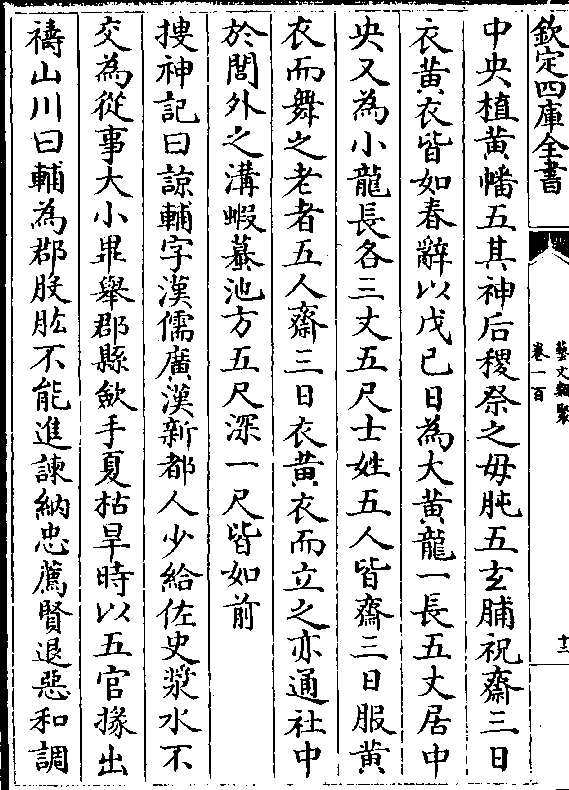 欽定四庫全書
藝文類聚
卷一百
十三
中央植黄幡五其神后稷祭之母肫五玄脯祝齋三日
衣黄衣皆如春辭以戊己日為大黄龍一長五丈居中
央又為小龍長各三丈五尺士姓五人皆齋三日服黄
衣而舞之老者五人齋三日衣黄衣而立之亦通社中
於閭外之溝蝦蟇池方五尺深一尺皆如前
搜神記曰諒輔字漢儒廣漢新都人少給佐史漿水不
交為從事大小畢舉郡縣歛手夏枯旱時以五官掾出
禱山川曰輔為郡股肱不能進諫納忠薦賢退惡和調